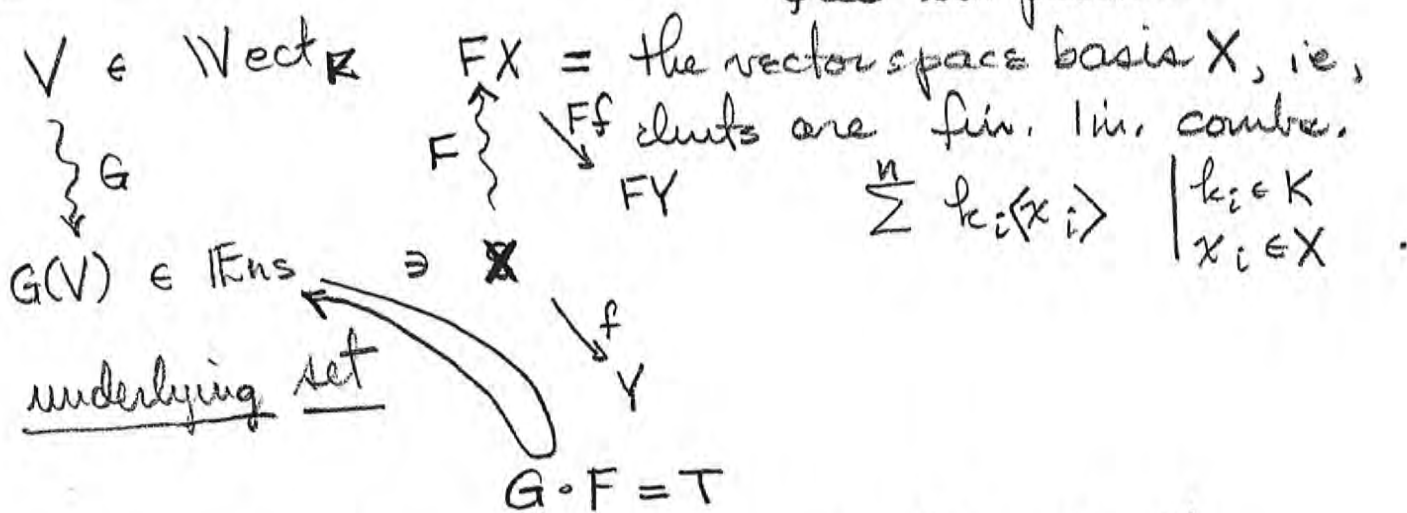 V ∈ Vect K FX = the vector space basis X, ie,
F Ff elmts are fin. lin. combs.
G FY n k_i ∈ K
∑ k_i⟨x_i⟩ | x_i ∈ X .
G(V) ∈ Ens ∋ X
f
underlying set Y
G∘F = T